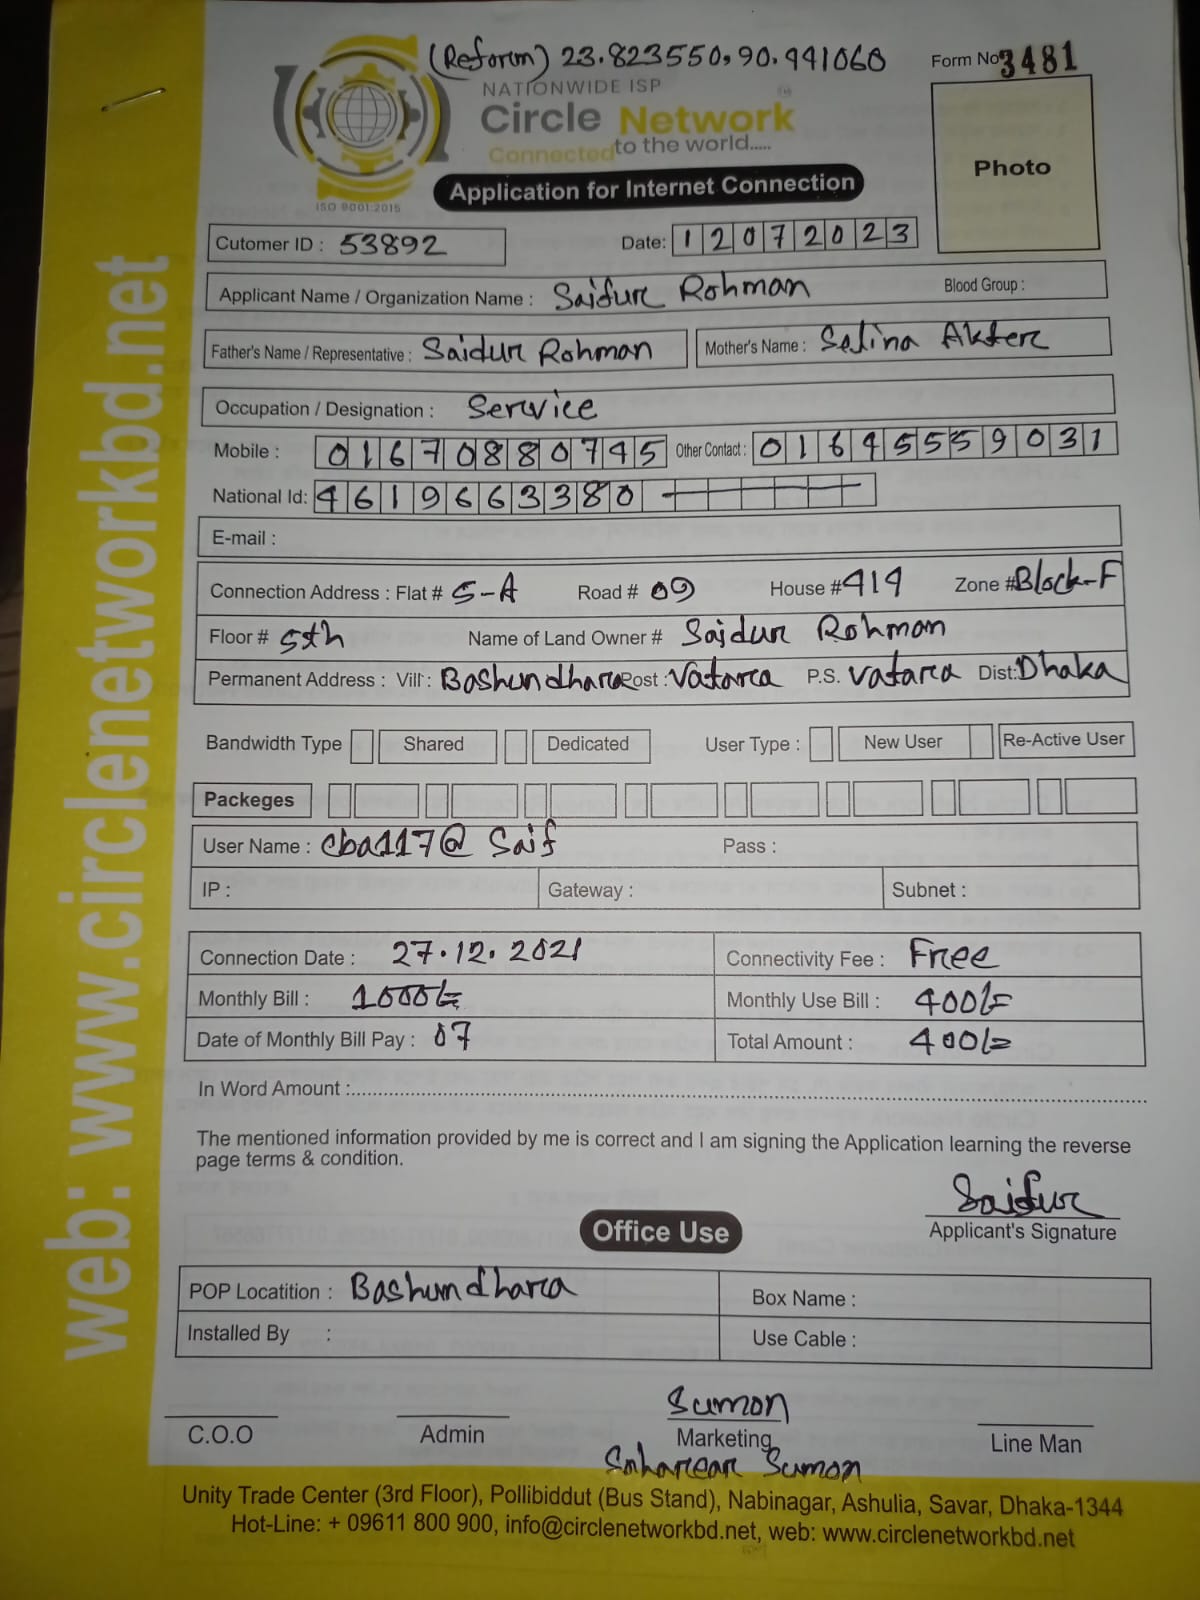 (Reform) 23.823550, 90.441060
Form No 3481
NATIONWIDE ISP
Circle Network
Connected to the world.....
ISO 9001:2015
Photo
Application for Internet Connection
Cutomer ID : 53892
Date: 12072023
Applicant Name / Organization Name : Saifur Rohman Blood Group :
Father's Name / Representative : Saidur Rohman Mother's Name : Selina Akter
Occupation / Designation : Service
Mobile : 01670880745 Other Contact : 01645559031
National Id: 4619663380
E-mail :
Connection Address : Flat # 5-A Road # 09 House # 419 Zone # Block-F
Floor # 5th Name of Land Owner # Saidur Rohman
Permanent Address : Vill : Bashundhara Post : Vatara P.S. vatara Dist: Dhaka
Bandwidth Type Shared Dedicated User Type : New User Re-Active User
Packeges
User Name : cba117@ Saif Pass :
IP : Gateway : Subnet :
Connection Date : 27.12.2021 Connectivity Fee : Free
Monthly Bill : 1000/= Monthly Use Bill : 400/=
Date of Monthly Bill Pay : 07 Total Amount : 400/=
In Word Amount :
The mentioned information provided by me is correct and I am signing the Application learning the reverse
page terms & condition.
Saifur
Applicant's Signature
Office Use
POP Locatition : Bashundhara Box Name :
Installed By : Use Cable :
Sumon
C.O.O Admin Marketing Line Man
Sumon
Unity Trade Center (3rd Floor), Pollibiddut (Bus Stand), Nabinagar, Ashulia, Savar, Dhaka-1344
Hot-Line: + 09611 800 900, info@circlenetworkbd.net, web: www.circlenetworkbd.net
web: www.circlenetworkbd.net